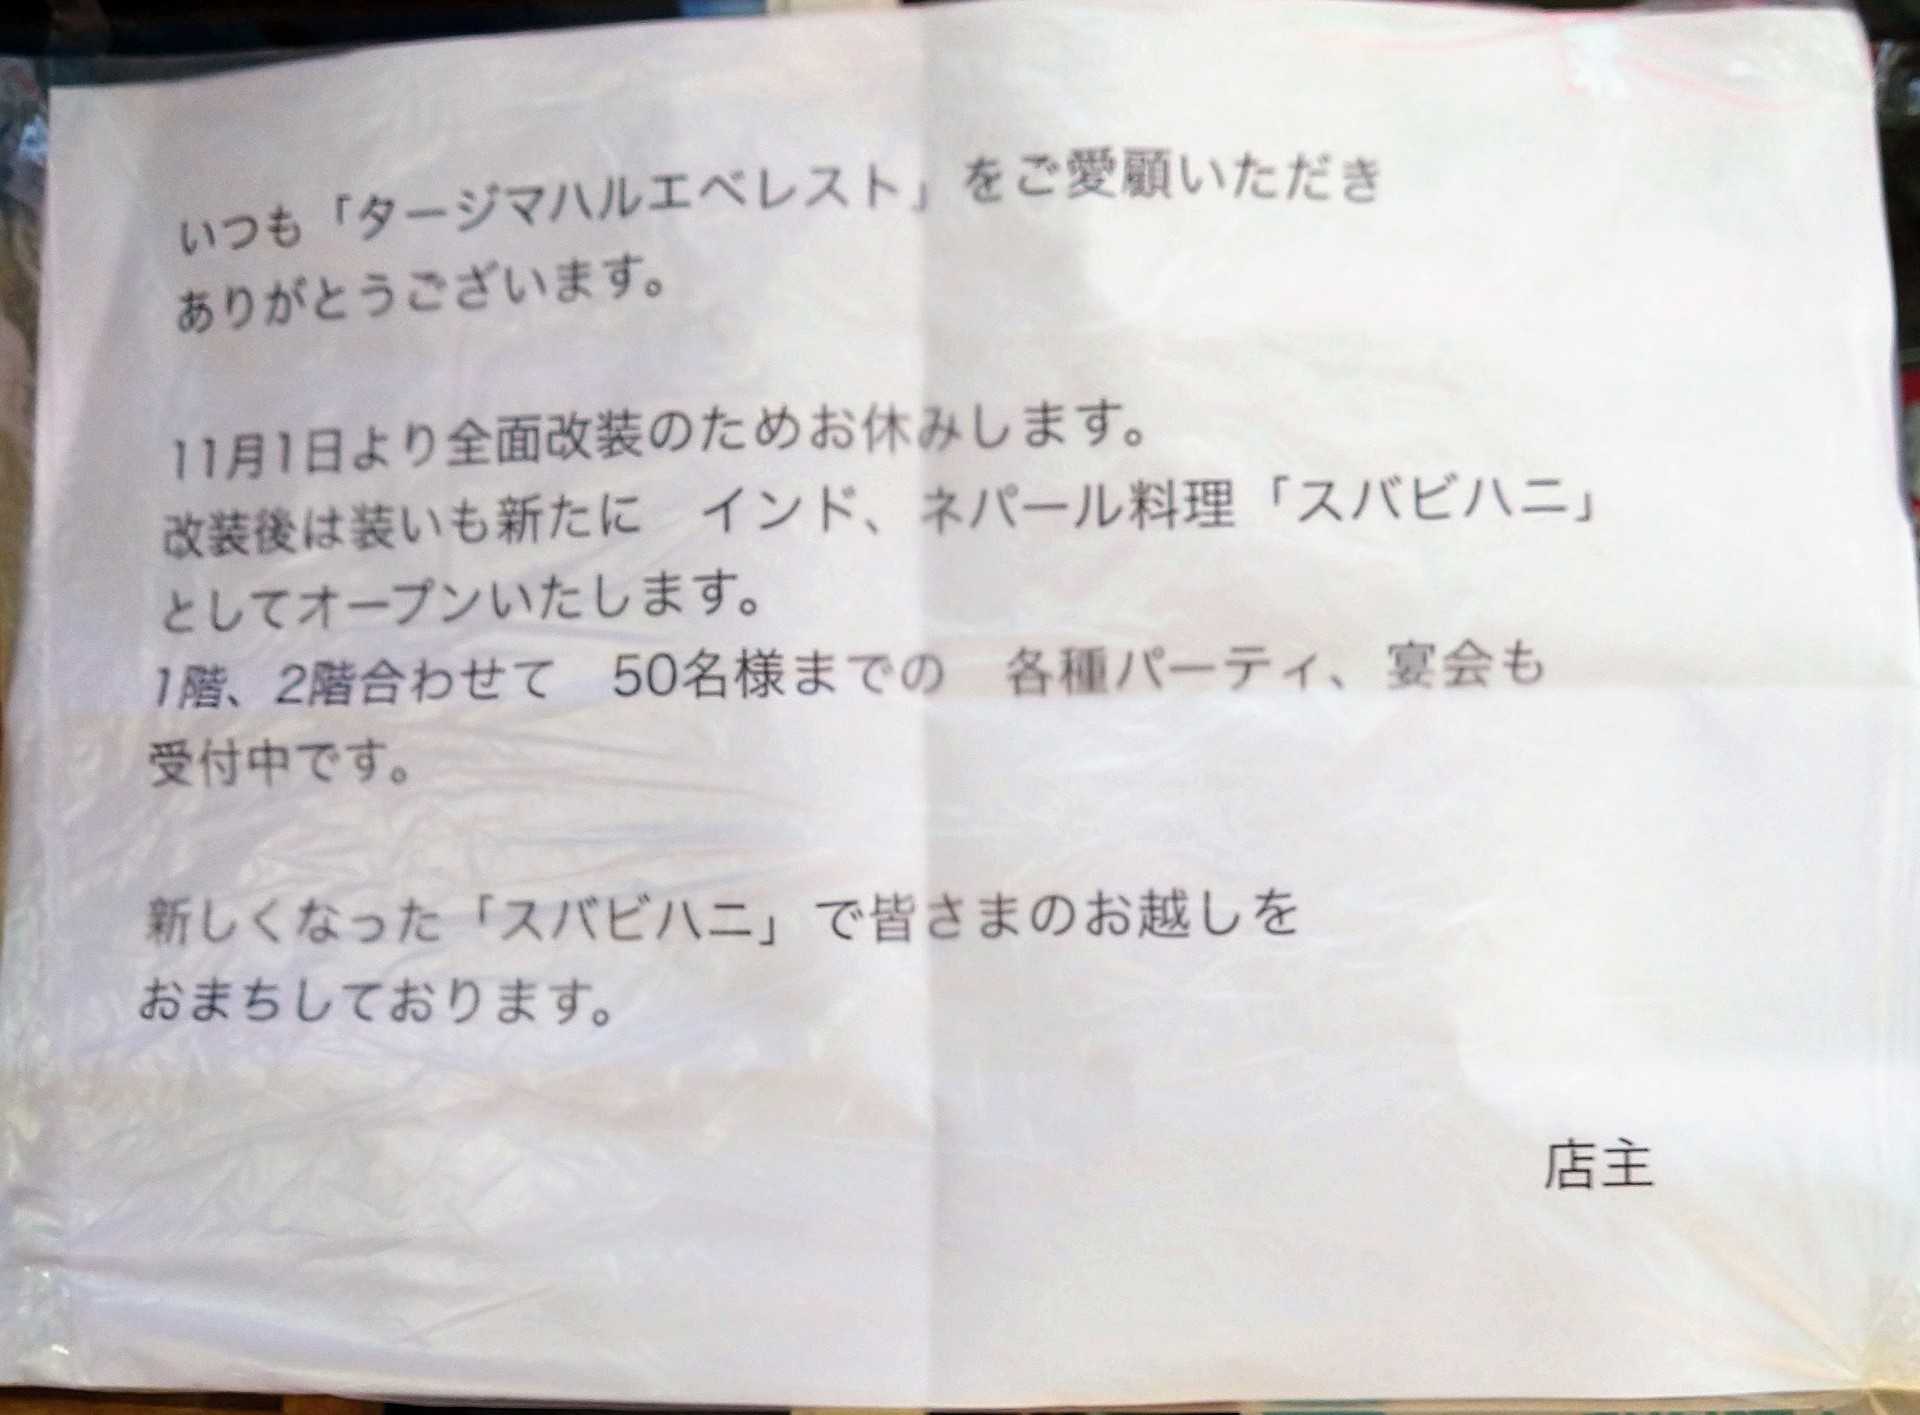 いつも「タージマハルエベレスト」をご愛顧いただき
ありがとうございます。
11月1日より全面改装のためお休みします。
改装後は装いも新たに　インド、ネパール料理「スバビハニ」
としてオープンいたします。
1階、2階合わせて　50名様までの　各種パーティ、宴会も
受付中です。
新しくなった「スバビハニ」で皆さまのお越しを
おまちしております。
店主